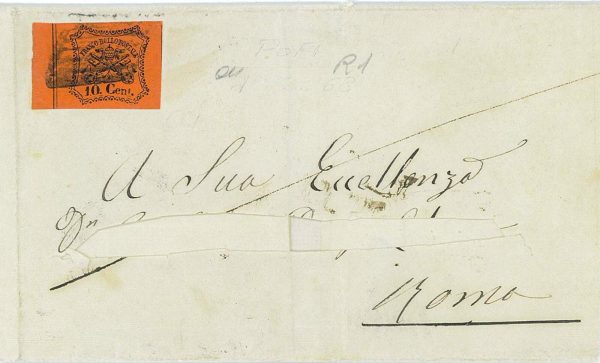 FRANCO BOLLO POSTALE
10. Cent.
R1
A Sua Eccellenza
Roma